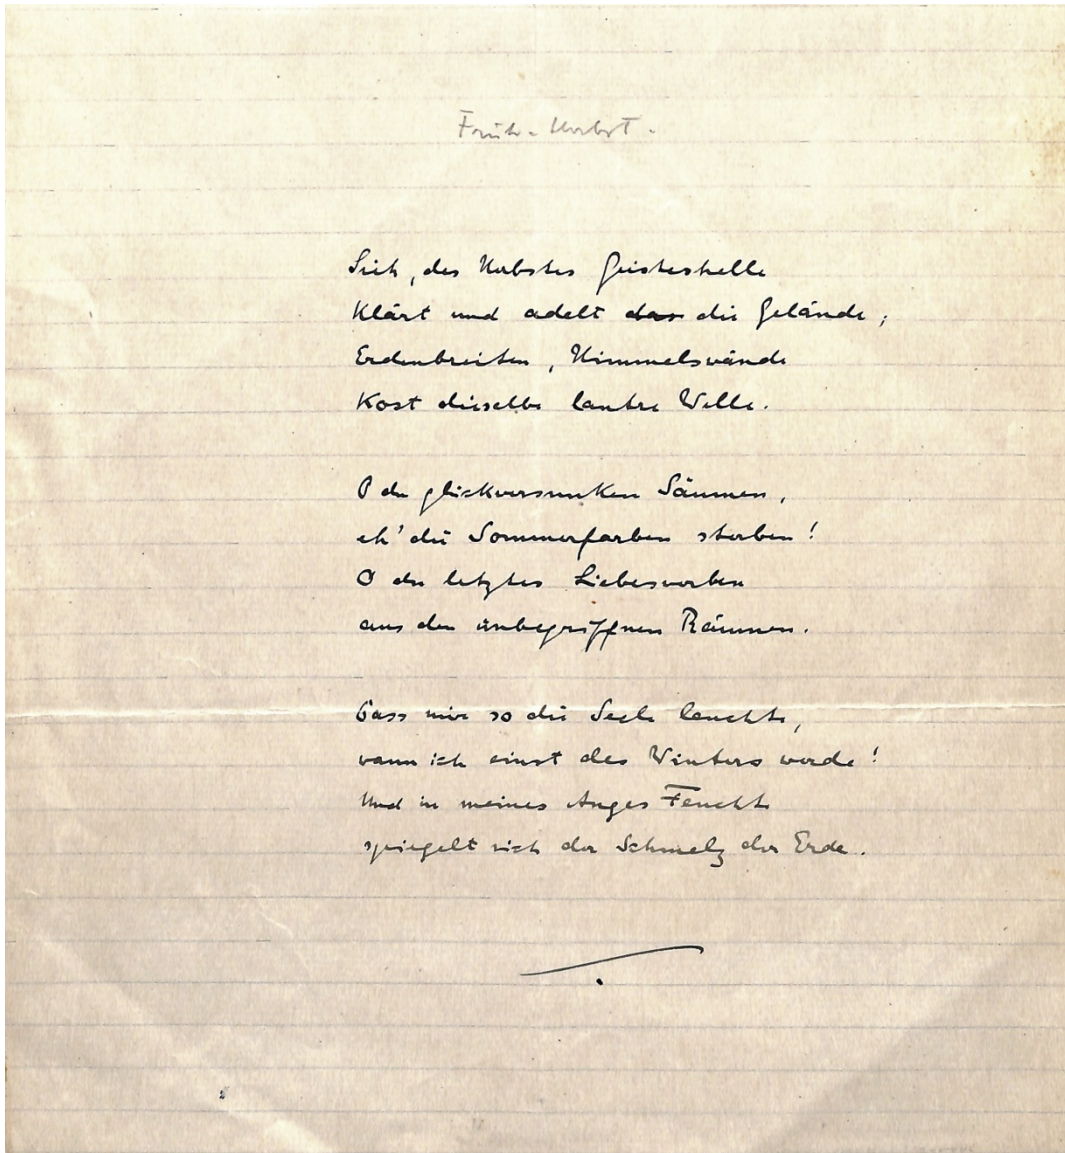 Früh-Herbst.
Sieh, des Herbstes Geisteshelle
Klärt und adelt das die Gelände;
Erdenbreiten, Himmelswände
Kost dieselbe lautre Welle.
O du glückversunken Säumen,
eh' die Sommerfarben starben!
O du letztes Liebeswerben
aus den unbegriffnen Räumen.
Dass mir so die Seele leuchte,
wann ich einst des Winters werde!
Und in meines Auges Feuchte
spiegelt sich der Schmelz der Erde.